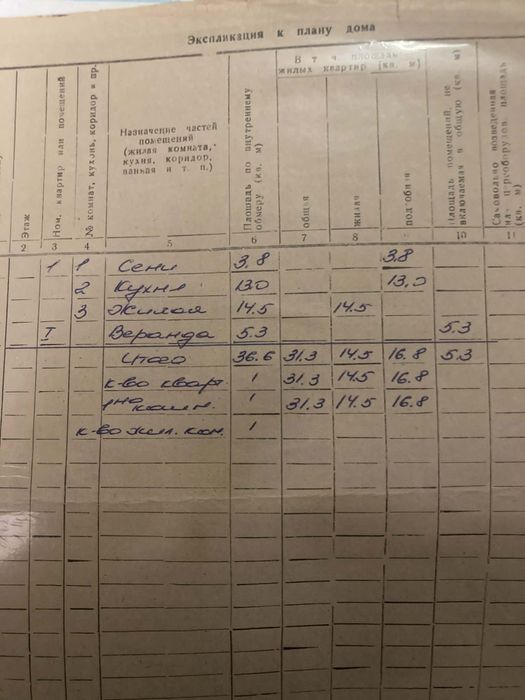 Экспликация к плану дома
Этаж
Ном. квартир или помещений
№ комнат, кухонь, коридор и пр.
Назначение частей
помещений
(жилая комната,
кухня, коридор,
ванная и т. п.)
Площадь по внутреннему
обмеру (кв. м)
В т. ч. площадь
жилых квартир (кв. м)
общая
жилая
подсобн
Площадь помещений, не
включаемая в общую (кв. м)
Самовольно возведенная
площадь
(кв. м)
2 3 4 5 6 7 8 9 10 11
1 1 Сени 3.8 3.8
2 Кухня 13.0 13.0
3 Жилая 14.5 14.5
I Веранда 5.3 5.3
Итого 36.6 31.3 14.5 16.8 5.3
к-во кварт. 1 31.3 14.5 16.8
1но комн. 1 31.3 14.5 16.8
к-во жил. ком. 1